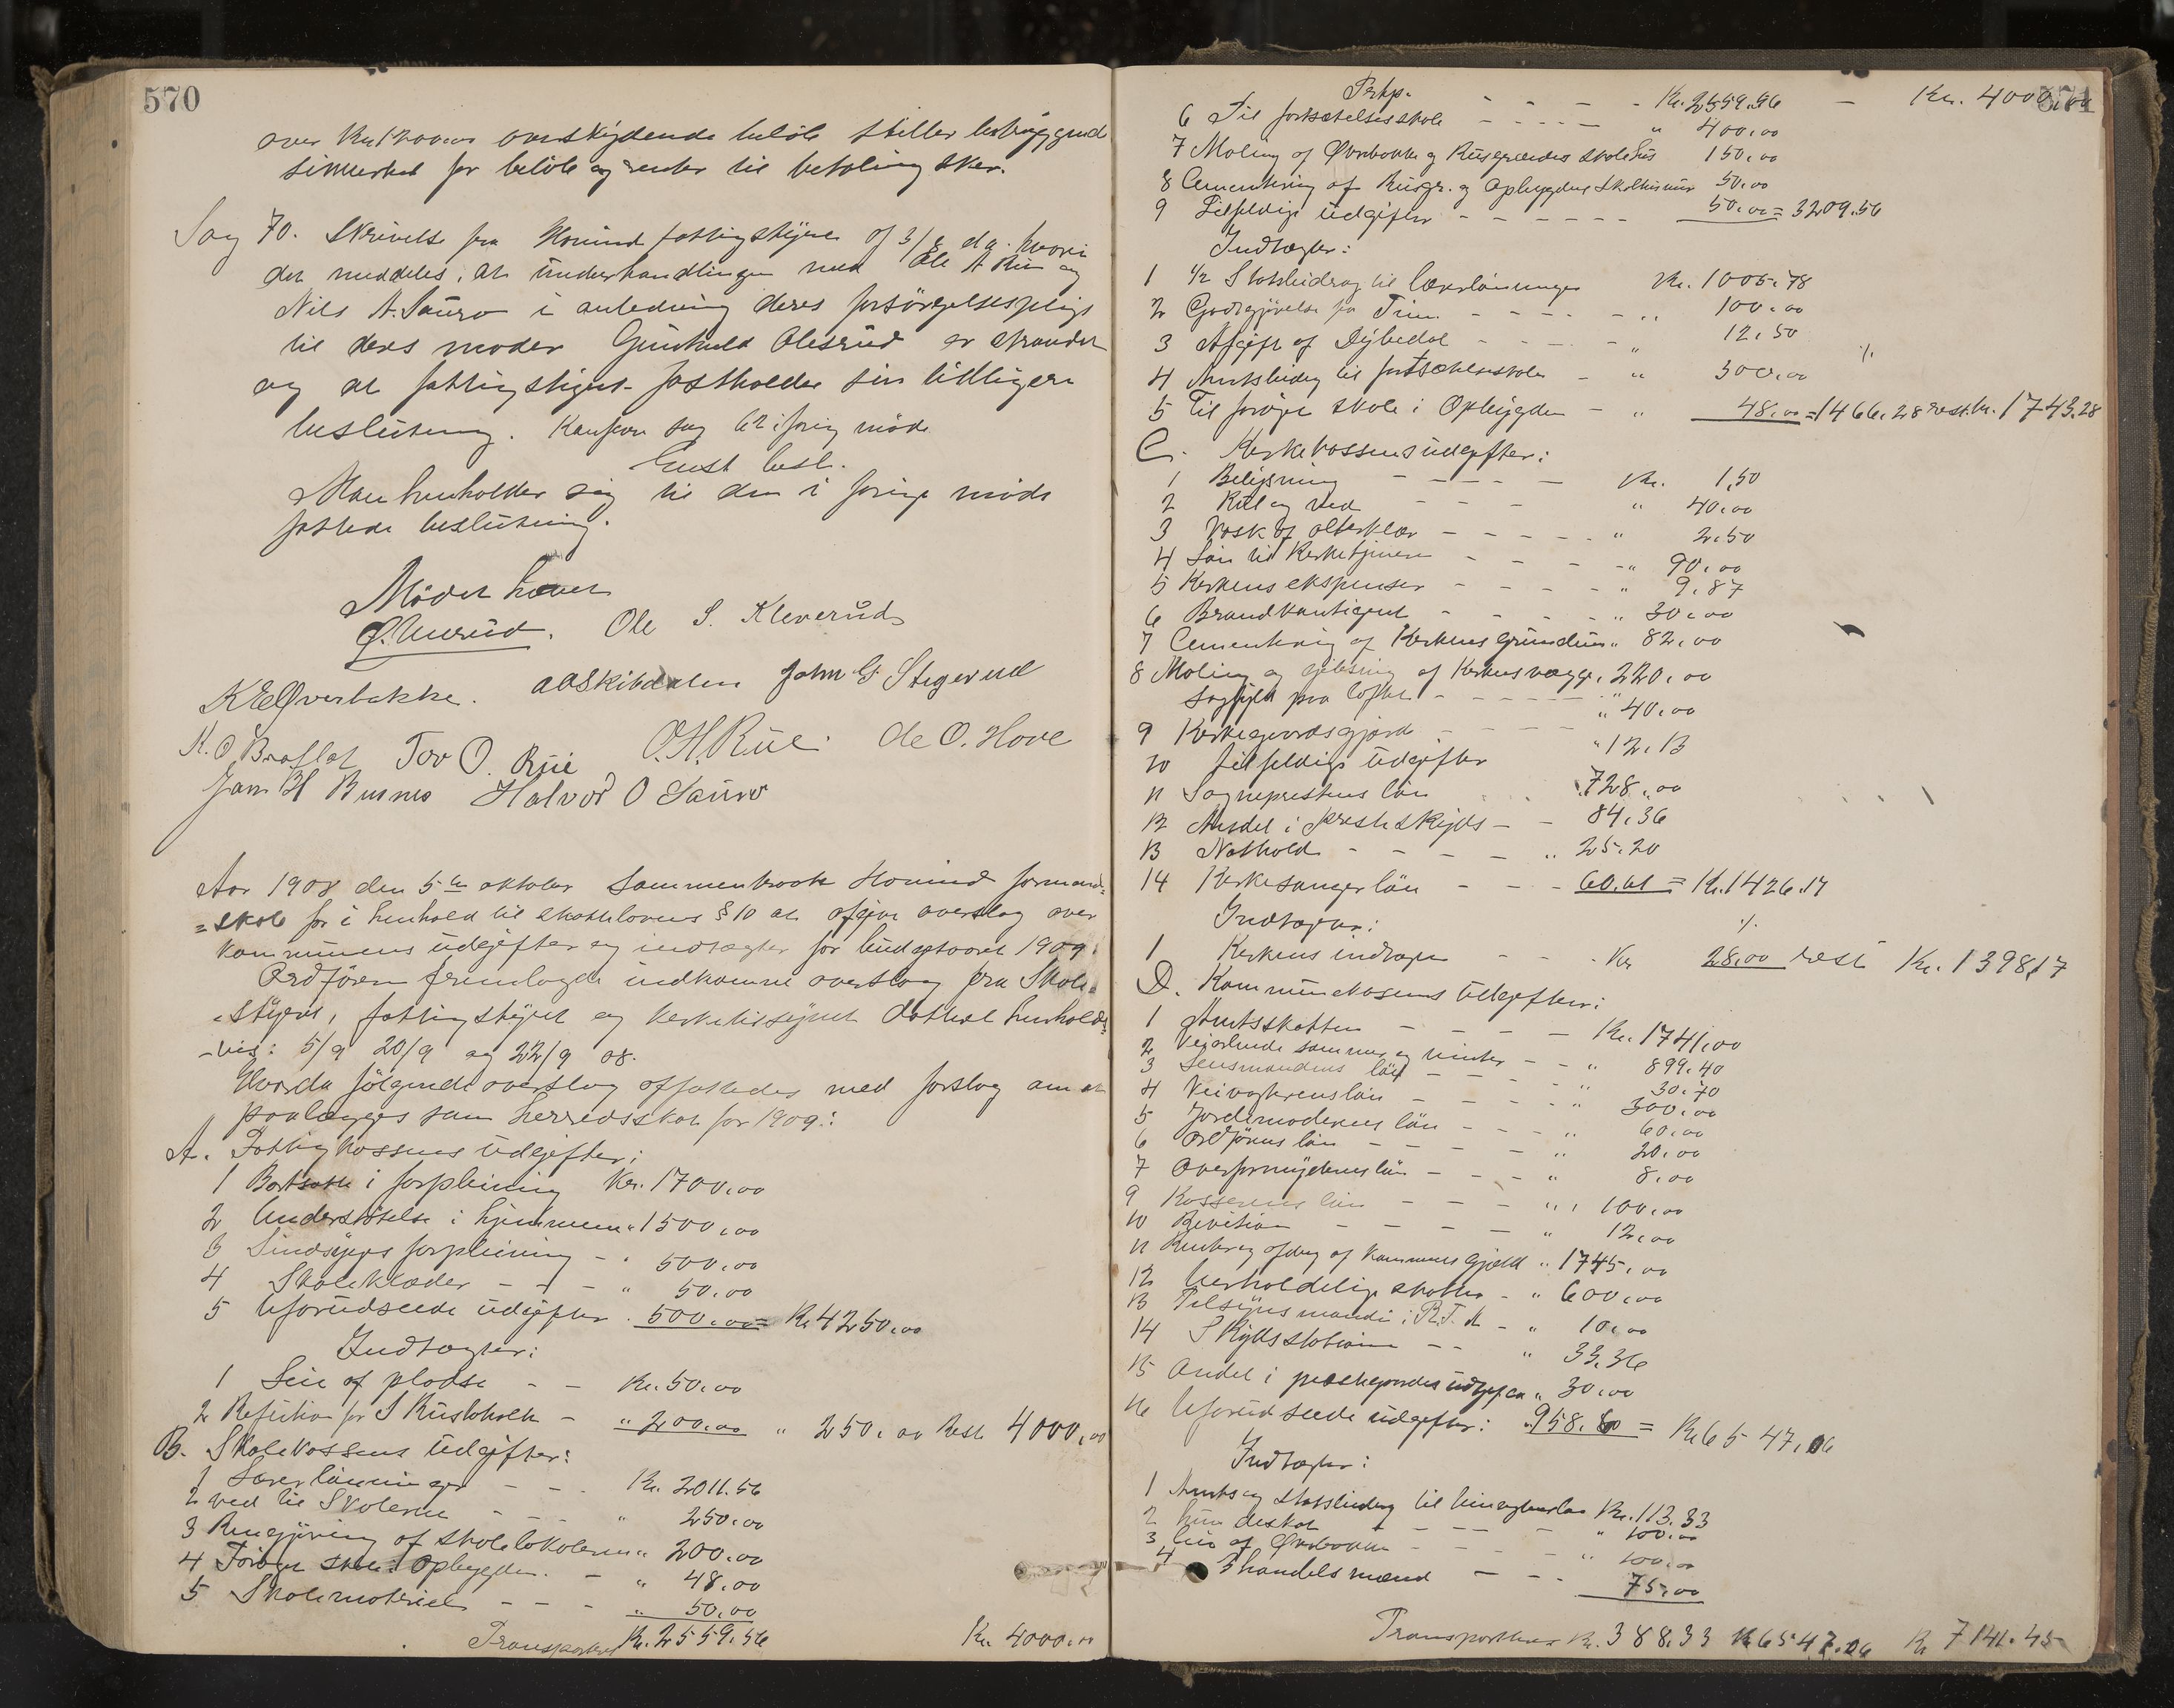 570
over Kr. 1200.00 overskydende belöb stiller betryggende
sikkerhed for belöb og renter til betaling sker.
Sag 70. Skrivelse fra Hovind fattigstyre af 3/8 d.a. hvori
det meddeles, at underhandlingen med Ole A Rue og
Nils A. Sauro i anledning deres forsörgelsespligt
til deres moder Gunhild Olesrud er strandet
og at fattigstyret fastholder sin tidligere
beslutning. Sag 62 i forrig möde
Enst. besl.
Man henholder sig til den i forrige möde
fattede beslutning.
Mödet hævet
Ole S. Kleverud
K E Øverbakke. A A Skibdalen John G. Stegerud
K. O Braflat Tov O. Rue O. H. Rue. de O. Hove
Jan H Busnes Halvor O Sauro
Aar 1908 den 5te oktober sammentraadte Hovind formand=
=skab for i henhold til skattelovens § 10 at afgive overslag over
kommunens udgifter og indtægter for budgetaaret 1909.
Ordfören fremlagde indkomne overslag fra Skole=
=styret, fattigstyret og kerketilsynet datteret henholds=
=vis: 5/9 20/9 og 22/9 08.
Hvorda fölgende overslag affattedes med forslag om at
paalægges som herredsskat for 1909:
A. Fattigkassens udgifter:
1 Bortsatte i forpleining Kr. 1700,00
2 Understöttelse i hjemmene " 1500,00
3 Sindsyges forpleining - " 500,00
4 Skoleklæder - - - " 50,00
5 Uforudseede udgifter. 500,00 = Kr 4250,00
Indtægter:
1 Leie af pladse - - Kr. 50,00
2 Refusion for - " 200,00 " 250,00 Rest 4000,00
B. Skolekassens udgifter:
1 Lærerlönninger - - - Kr. 2011.56
2 Ved til Skolerne - - - " 250,00
3 Rengjöring af skolelokalerne " 200.00
4 Foröget skole i Opbygden. - " 48.00
5 Skolemateriel - - - " 50,00
Transporteres Kr. 2559.56 Kr. 4000.00
571
Trsp. - - - - Kr. 2559.56 - Kr. 4000,00
6 Til fortsættelsesskole - - - - - " 400,00
7 Maling af Øvrebakke og Ruegrændes skolehus 150,00
8 Cementering af Ruegr. og Opbygdens Skolhusmur 50,00
9 Tilfeldige udgifter - - - - - - 50,00 = 3209.56
Indtægter:
1 1/2 Statsbidrag til lærerlönninger Kr. 1005.78
2 Godtgjörelse fra Tinn. - - - - - " 100,00
3 Afgift af Dybedal - - - - " 12,50
4 Amtsbidrag til fortsættelsesskole - " 300,00 %
5 Til foröget skole i Opbygden - " 48,00 = 1466,28 rest. kr. 1743,28
C. Kerkekassens udgifter:
1 Belysning - - - - - Kr. 1,50
2 Kul og ved - - - " 40,00
3 Vask af alterklær - - - - - " 2.50
4 Lön til Kerketjenere - - - - " 90,00
5 Kerkens ekspenser - - - - - " 9,87
6 Brandkontigent - - - - - " 30,00
7 Cementering af Kerkens Grundmur " 82,00
8 Maling og gibsning af Kerkens vægge, 220,00
Sagfyld paa loftet - - - - - " 40,00
9 Kerkegaardsgjærd - - - " 12,13
10 Tilfeldige udgifter
11 Sogneprestens lön " 728,00
12 Andel i presteskyds - - 84,36
13 Nathold - - - - - " 25.20
14 Kerkesangerlön - - - 60.61 = Kr. 1426.17
Indtægter: %
1 Kerkens indtægter - - - Kr 28,00 rest Kr. 1398,17
D. Kommunekassens udgifter:
1 Amtsskatten - - - - - Kr. 1741,00
2 Veiarbeide sommer og vinter - - " 899.40
3 Lensmandens lön - - - - - " 30.70
4 Veivogterens lön - - - - - " 300,00
5 Jordemoderens lön - - - " 60,00
6 Ordförens lön - - - - " 20,00
7 Overformynderens lön - - - " 8,00
9 Kassererens lön - - - - " 100,00
10 Revision - - - - - " 12,00
11 Renter og afdrag af kommunens Gjæld " 1745,00
12 Uerholdelige skatter - " 600,00
13 Tilsynsmænd i R.T.A - " 10,00
14 Skydsstationen - - " 33,36
15 Andel i prestegaardes udgifter " 30,00
16 Uforudseede udgifter: " 958.60 = Kr 6547,06
Indtægter:
1 Amts og statsbidrag til Kr. 113.33
2 Hundeskat - - - - - " 100.00
3 Leie af Øvrebakke - - - - - " 100,00
4 3 handelsmænd - - - 75,00
Transporteres Kr. 388.33 Kr 6547.06 Kr 7141.45